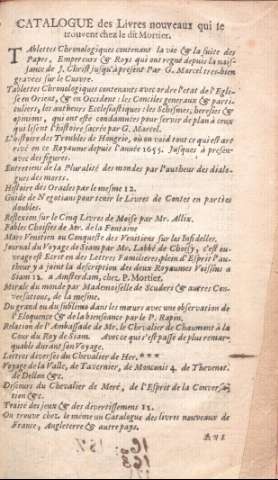 CATALOGUE des Livres nouveaux qui se
trouvent chez le dit Mortier.
TAblettes Chronologiques contenant la vie & la suite des
Papes, Empereurs & Roys qui ont regné depuis la nais-
sance de J. Christ jusqu'à present Par G. Marcel tres-bien
gravees sur le Cuivre.
Tablettes Chronologiques contenants avec ordre l'etat de l'Egli-
se en Orient, & en Occident: les Conciles generaux & parti-
culiers, les autheurs Ecclesiastiques: les Schismes, heresies &
opinions, qui ont eté condamnées pour servir de plan à ceux
qui lisent l'histoire sacrée par G. Marcel.
L'histoire des Troubles de Hongrie, où on void tout ce qui est arr
rivé en ce Royaume depuis l'année 1655. Jusques à presen-
avec des figures.
Entretiens de la Pluralité des mondes par l'autheur des dialo-
gues des morts.
Histoire des Oracles par le mesme 12.
Guide de Negotians pour tenir le Livres de Contes en parties
doubles.
Reflexion sur le Cinq Livres de Moise par Mr. Allix.
Fables Choisies de Mr. de la Fontaine
Mars Venitien ou Conqueste des Venitiens sur les Infidelles.
Journal du Voyage de Siam par Mr. L'abbé de Choisy, c'est ou-
vrage est Ecrit en des Lettres Familieres, plein d'Esprit l'au-
theur y a joint la description des deux Royaumes Voisins a
Siam 12. a Amsterdam, chez P. Mortier.
Morale du monde par Mademoiselle de Scuderi & autres Con-
versations, de la mesme.
Du grand ou du sublime dans les mœurs avec une observation de
l'Eloquence & de la bienseance par le P. Rapin.
Relation de l'Ambassade de Mr. le Chevalier de Chaumont à la
Cour du Roy de Siam. Avec ce qui s'est passé de plus remar-
quable durant son Voyage.
Lettres diverses du Chevalier de Her.***
Voyage de la Valle, de Tavernier, de Monconis 4. de Thevenot.
de Dellon &c.
Discours du Chevalier de Meré, de l'Esprit de la Conversa-
tion &c.
Traité des jeux & des divertissemens 12.
On trouve chez le même un Catalogue des livres nouveaux de
France, Angleterre & autre pays.
AVI